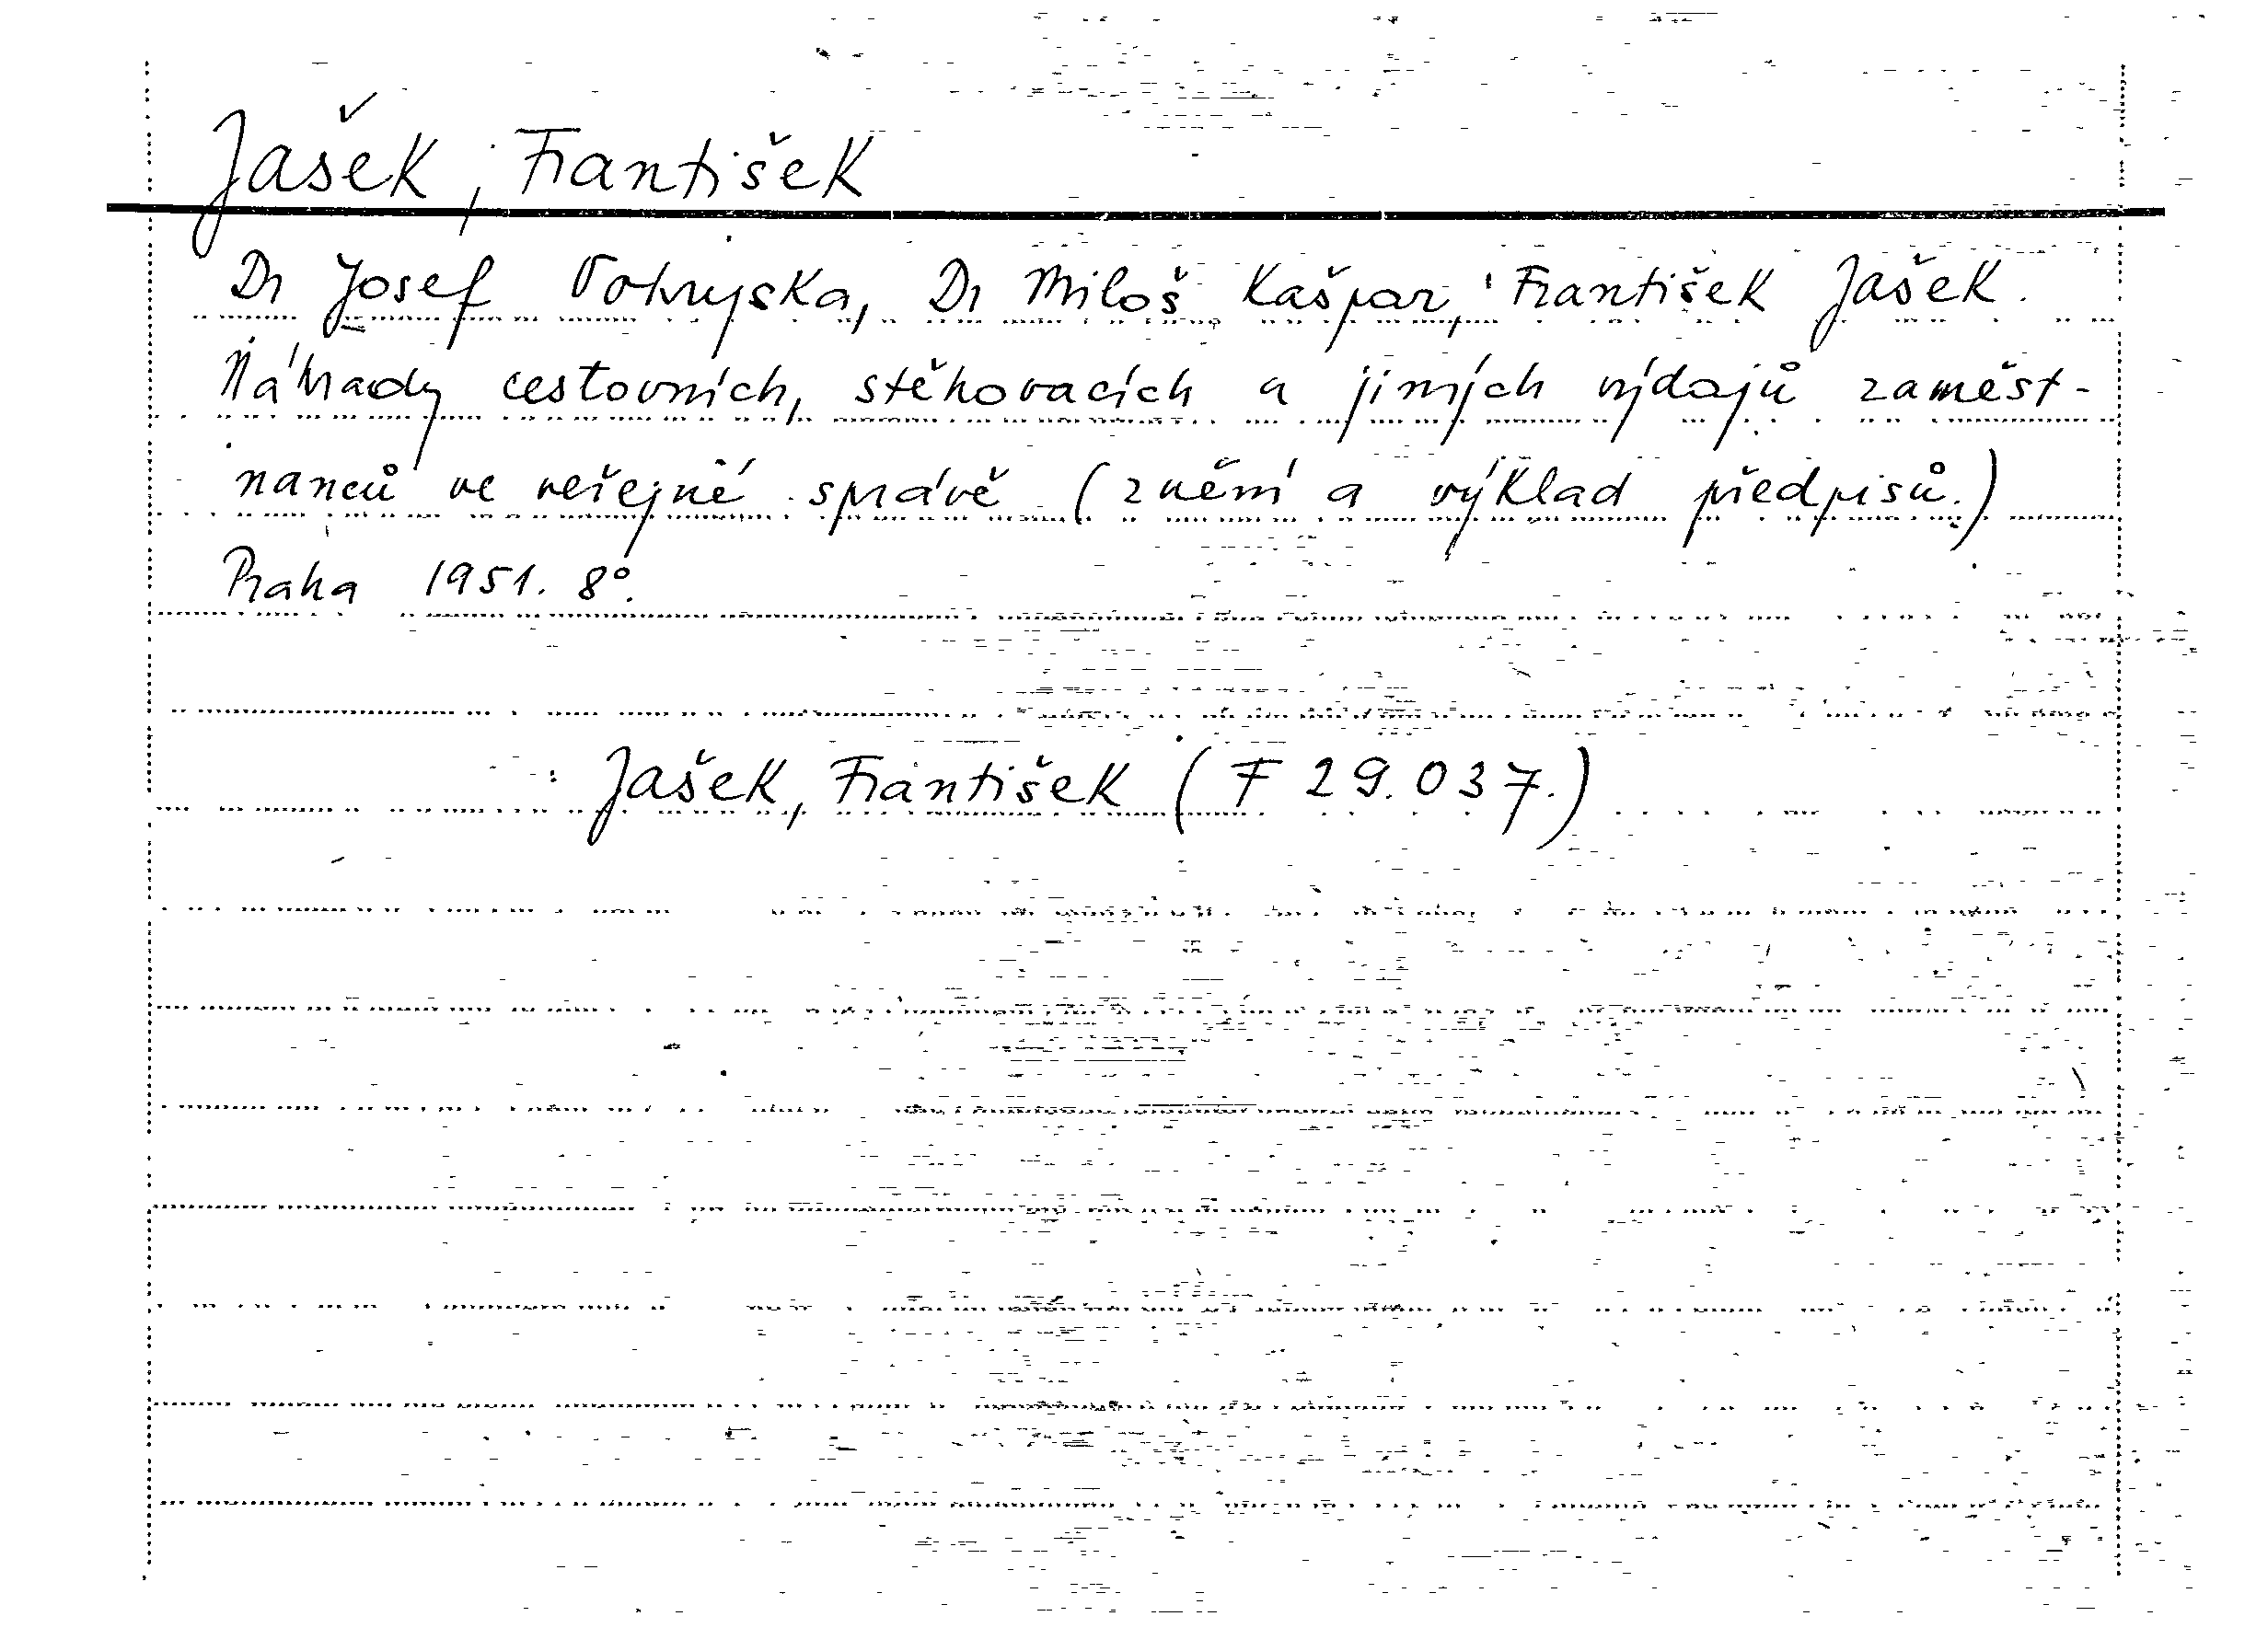 Jašek, František
Dr Josef Pokryska, Dr Miloš Kašpar, František Jašek.
Náhrady cestovních, stěhovacích a jiných výdajů zaměst-
nanců ve veřejné správě (znění a výklad předpisů.)
Praha 1951. 8°.
Jašek, František (F 29.037.)